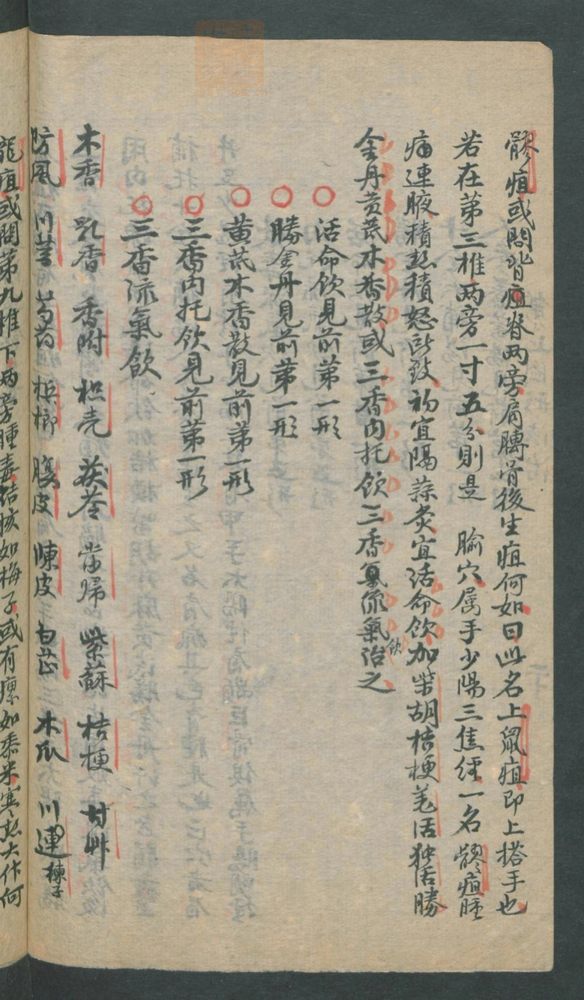 髎疽或問背疽脊兩旁肩膊骨後生疽何如曰此名上鼠疽即上搭手也
若在第三椎兩旁一寸五分則是 腧穴属手少陽三焦經一名髎疽腫
痛連腋積熱積怒所致初宜隔蒜灸宜活命飲加柴胡桔梗羌活独活勝
金丹黄芪木香散或三香內托飲三香流氣飲治之
○活命飲見前第一形
○勝金丹見前第一形
○黄芪木香散見前第一形
○三香內托飲見前第一形
○三香流氣飲
木香 乳香 香附 枳壳 茯苓 當歸 紫蘇 桔梗 甘艸
防風 川芎 芍药 槟榔 腹皮 陳皮 白芷 木瓜 川連 楝子
龍疽或問第九椎下两旁腫毒結核如梅子或有瘰如黍米寒熱大作何